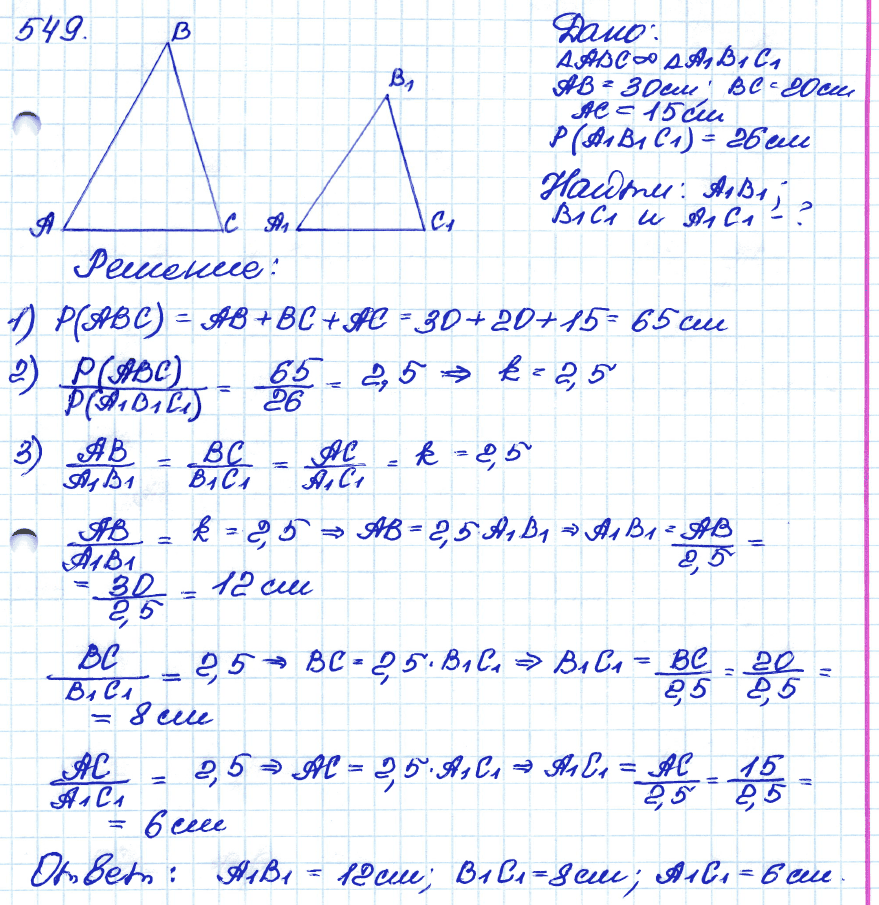 549.
B
B1
A
C
A1
C1
Дано:
ΔABC∞ ΔA1B1C1
AB = 30см; BC = 20см
AC = 15см
P(A1B1C1) = 26см
Найти: A1B1;
B1C1 и A1C1 - ?
Решение:
1) P(ABC) = AB + BC + AC = 30 + 20 + 15 = 65 см
2) P(ABC)/P(A1B1C1) = 65/26 = 2,5 ⇒ k = 2,5
3) AB/A1B1 = BC/B1C1 = AC/A1C1 = k = 2,5
AB/A1B1 = k = 2,5 ⇒ AB = 2,5·A1B1 ⇒ A1B1 = AB/2,5 =
= 30/2,5 = 12 см
BC/B1C1 = 2,5 ⇒ BC = 2,5·B1C1 ⇒ B1C1 = BC/2,5 = 20/2,5 =
= 8 см
AC/A1C1 = 2,5 ⇒ AC = 2,5·A1C1 ⇒ A1C1 = AC/2,5 = 15/2,5 =
= 6 см
Ответ: A1B1 = 12см; B1C1 = 8см; A1C1 = 6 см.